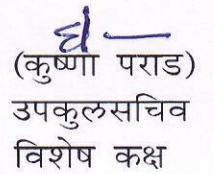 (कुष्णा पराड)
उपकुलसचिव
विशेष कक्ष